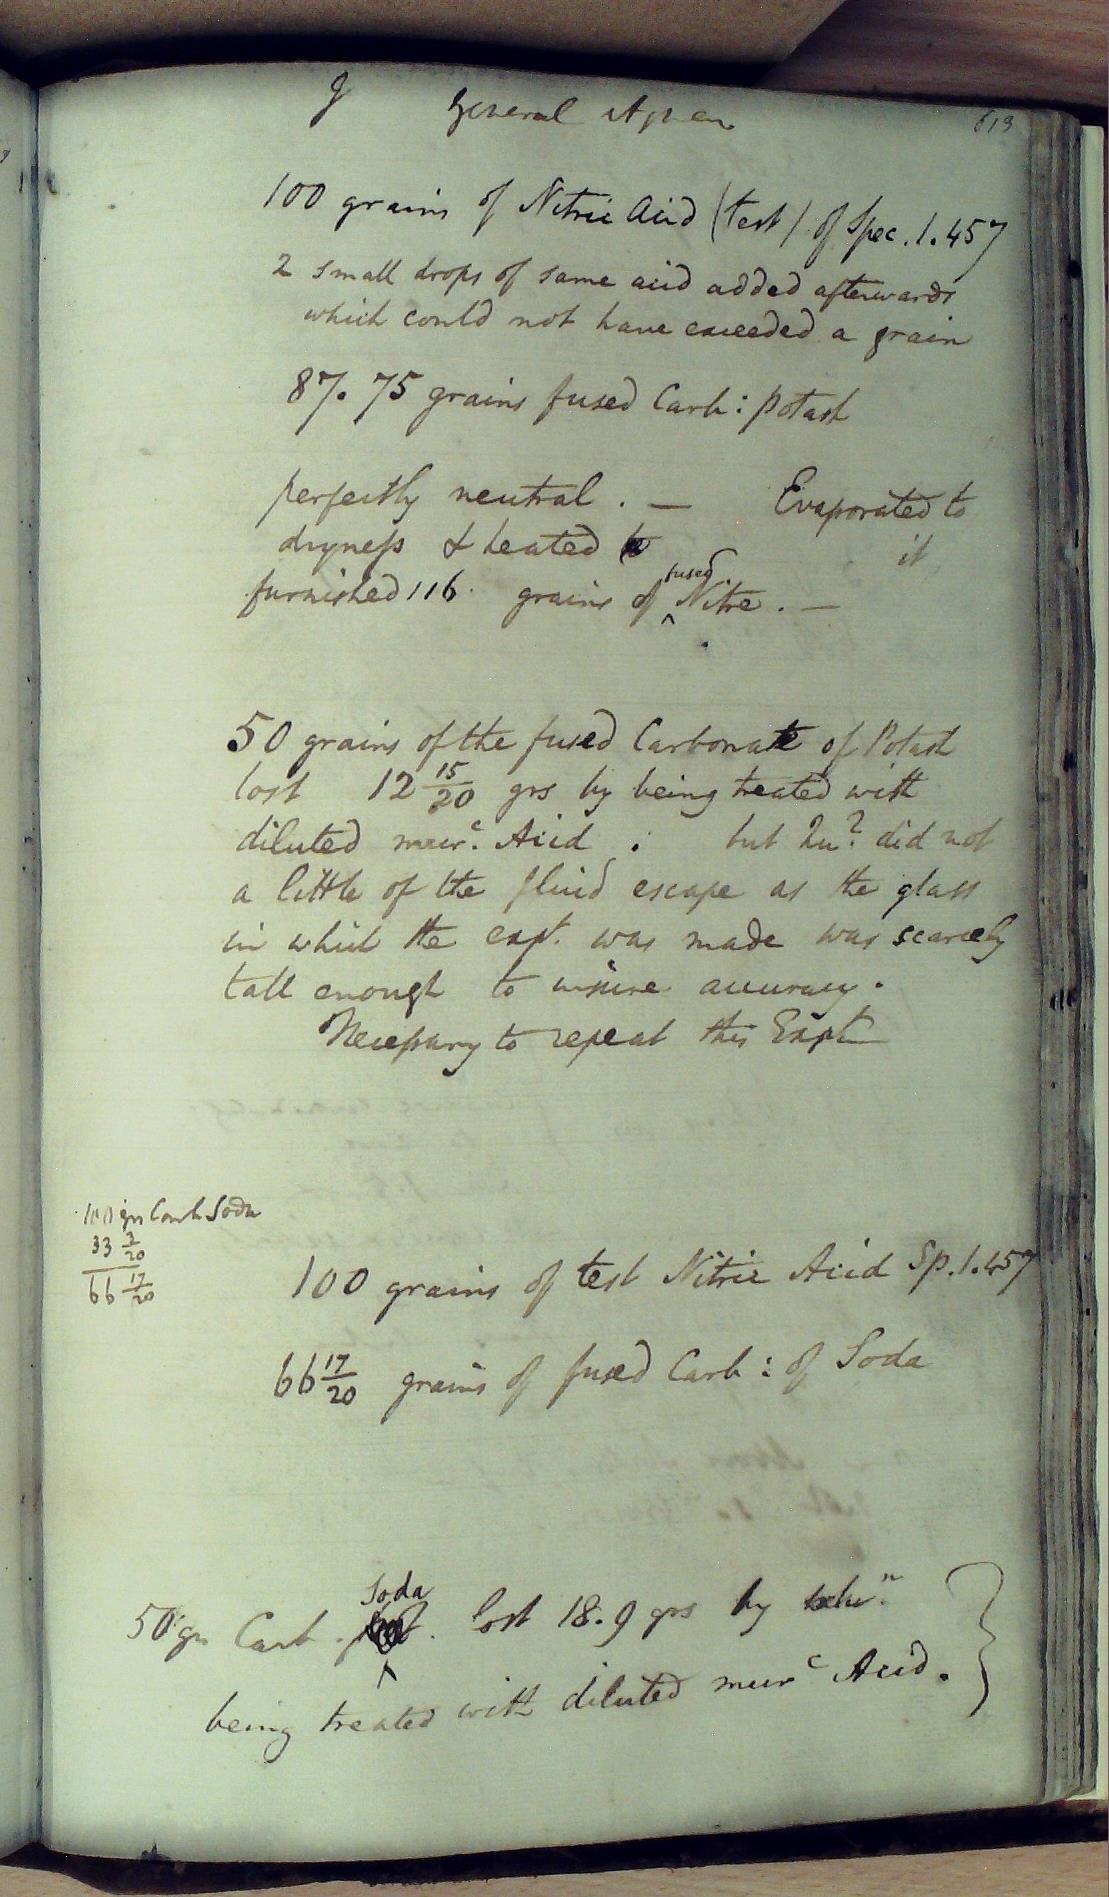 g General Appen 613
100 grains of Nitric Acid (test) of Spec. 1.457
2 small drops of same acid added afterwards
which could not have exceeded a grain
87.75 grains fused Carb: potash
perfectly neutral. — Evaporated to
dryness & heated it
furnished 116. grains of ^ fused Nitre. —
50 grains of the fused Carbonate of Potash
lost 12 15/20 grs by being treated with
diluted murc. Acid. but Qu? did not
a little of the fluid escape as the glass
in which the expt. was made was scarcely
tall enough to insure accuracy.
Necessary to repeat this Expt
100 grs Carb Soda
33 3/20
66 17/20
100 grains of test Nitric Acid Sp. 1.457
66 17/20 grains of fused Carb: of Soda
50 gr Carb. ^ Soda lost 18.9 grs by
being treated with diluted murc Acid.